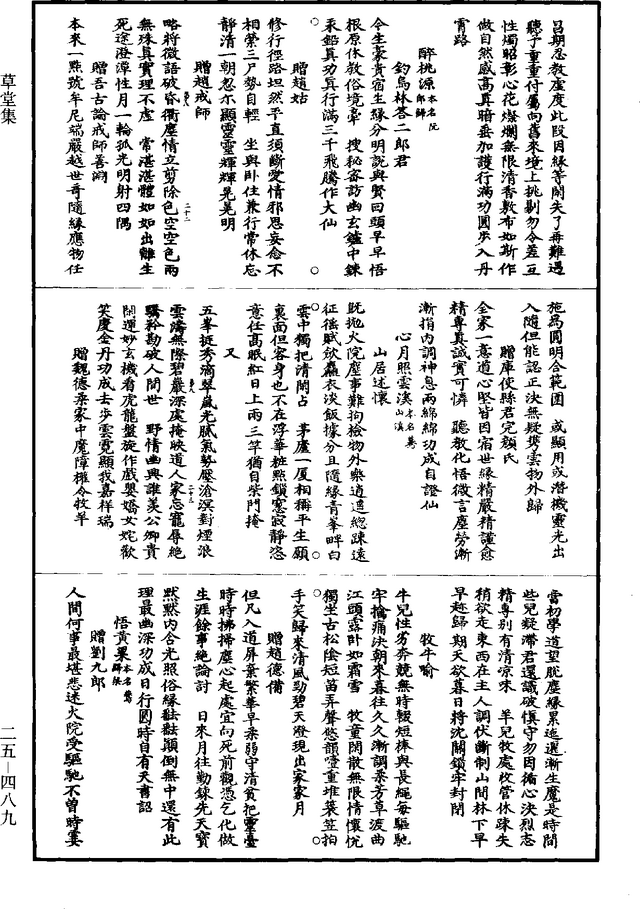 草堂集
呂期忽教虛度此段因緣等閑失了再難過
聽予重重付屬向舊來境上挑剔勿令差互
性燭昭彰心花燦爛無限清香敷布如斯作
做自然感高真暗垂加護行滿功圓步入丹
霄路
醉桃源本名阮郎歸
釣烏林答二郎君
令生豪貴宿生緣分明說與賢回頭早早悟
根原休教俗境牽 搜秘密訪幽玄鑪中鍊
汞鉛真功真行滿三千飛騰作大仙
贈趙姑
修行徑路坦然平直須斷愛情邪思妄念不
相縈三尸勢自輕 坐與卧住兼行常休忘
靜清一朝忽尒顯靈靈輝輝晃晃明
贈趙戒師
略將微語破昏衢塵情立剪除色空空色兩
無殊真實理不虛 常湛湛體如如出離生
死途澄潭性月一輪孤光明射四隅
贈吾古論戒師善淵
本來一點號牟尼端嚴越世奇隨緣應物任
施爲圓明合範圍 或顯用或潛機靈光出
入隨但能認正決無疑攜雲物外歸
贈庫使縣君完顏氏
全家一意道心堅皆因宿世緣精嚴精謹愈
精專真誠實可憐 聽教化悟微言塵勞漸
漸捐內調神息兩綿綿功成自證仙
心月照雲溪本名驀山溪
山居述懷
既拋火院塵事難拘檢物外樂逍遥總踈遠
征徭賦歛麤衣淡飯據分且隨緣青峯畔白
雲中獨把清閑占 茅廬一厦相稱平生願
裏面但容身也不在浮華粧點鎖窻寂靜恣
意任高眠紅日上兩三竿猶自柴門掩
又
五峯挺秀滴翠嵐光膩氣勢壓滄溟對煙浪
雲濤無際碧巖深處掩映道人家忘寵辱絕
驕矜勘破人間世 野情幽興誰羨公卿貴
閑運妙玄機看虎龍盤旋作戲嬰嬌女姹歡
笑慶金丹功成去步雲霓顯我嘉祥瑞
贈魏德柔家中魔障權令牧羊
當初學道望脫塵緣累迤邐漸生魔是時間
些兒疑滯君還識破慎守勿因循心決烈志
精專別有清涼味 羊兒牧處收管休踈失
稍欲走東西在主人調伏斷制山間林下早
早趂歸期天欲暮日將沉關鎖牢封閉
牧牛喻
牛兒性劣奔競無時輟短棒與長䋲每驅馳
牢擒痛決朝來暮往久久漸調柔芳草渡曲
江頭露卧如霜雪 牧童閑散無限情懷恱
獨坐古松陰短笛弄聲悠韻噎重堆蓑笠拍
手笑歸來清風勁碧天澄現出家家月
贈趙德備
但凡入道屏棄繁華早柔弱守清貧把靈臺
時時拂掃塵心起處宜向死前觀憑乞化做
生涯餘事絕論討 日來月往勤鍊先天寳
默默內含光照俗緣皷皷顛倒無中還有此
理最幽深功成日行圓時自有天書詔
悟黃粱本名鷰歸梁
贈劉九郎
人間何事最堪悲迷火院受驅馳不曽時霎
二五—四八九